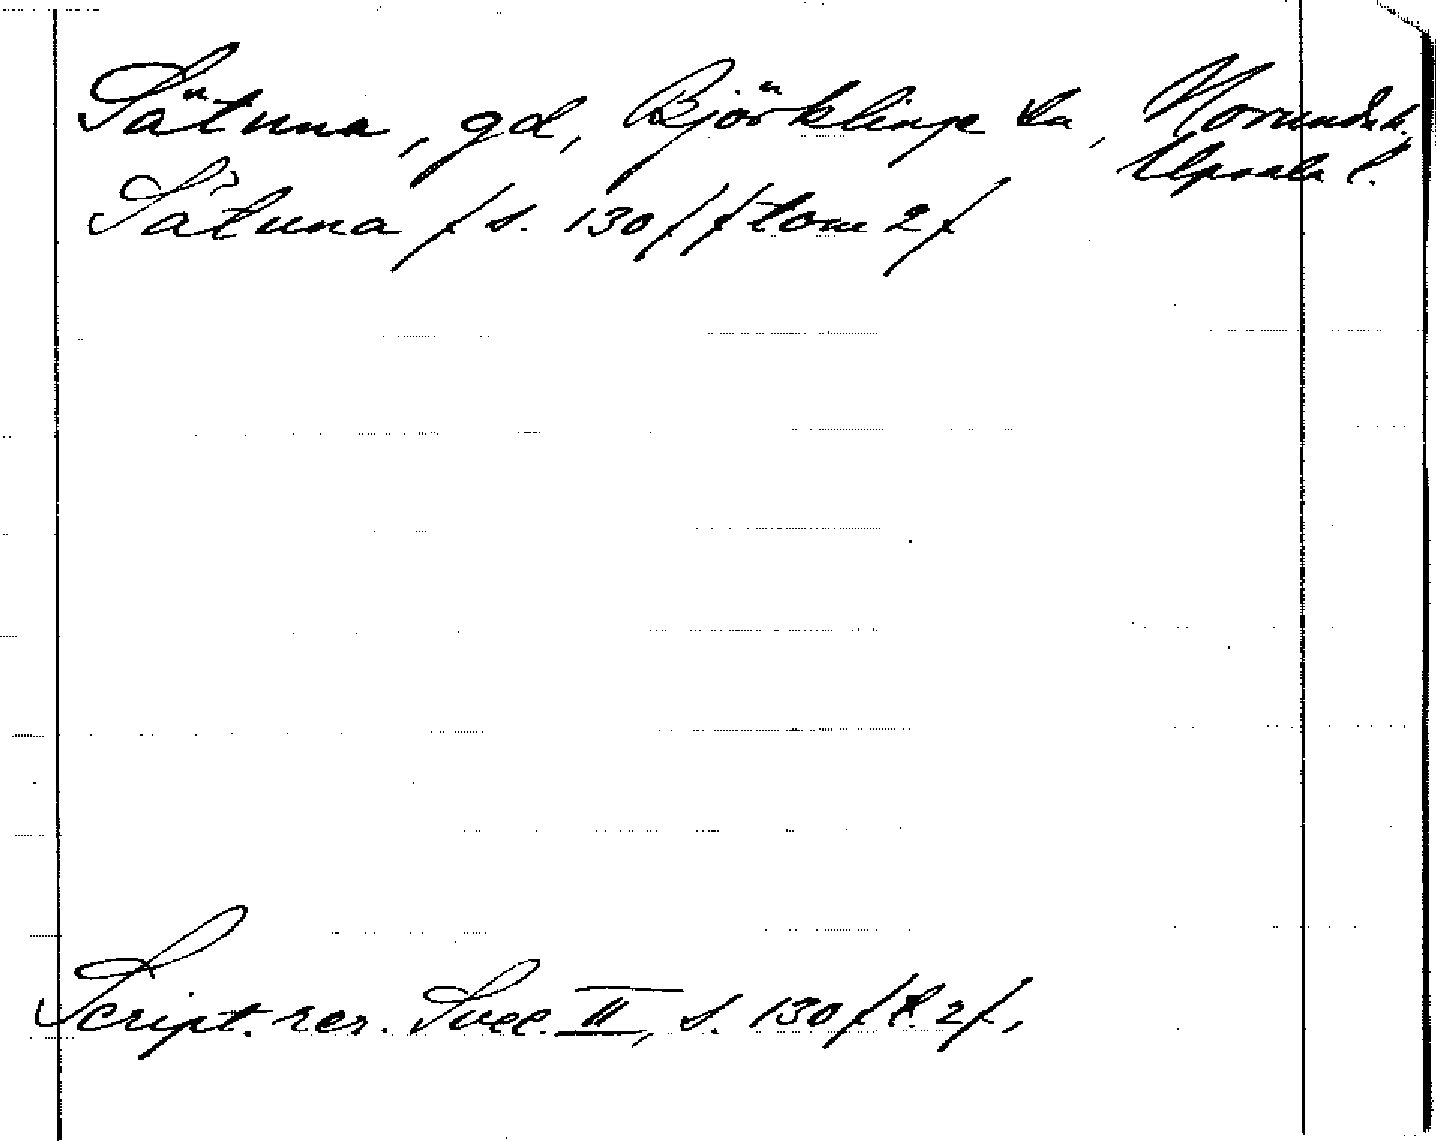 Sätuna, gd, Björklinge sn, Norunda h.,
Upsala l.
Sätuna / s. 130 / / tom 2 /
Script. rer. Svec. II, s. 130 / t. 2 /.